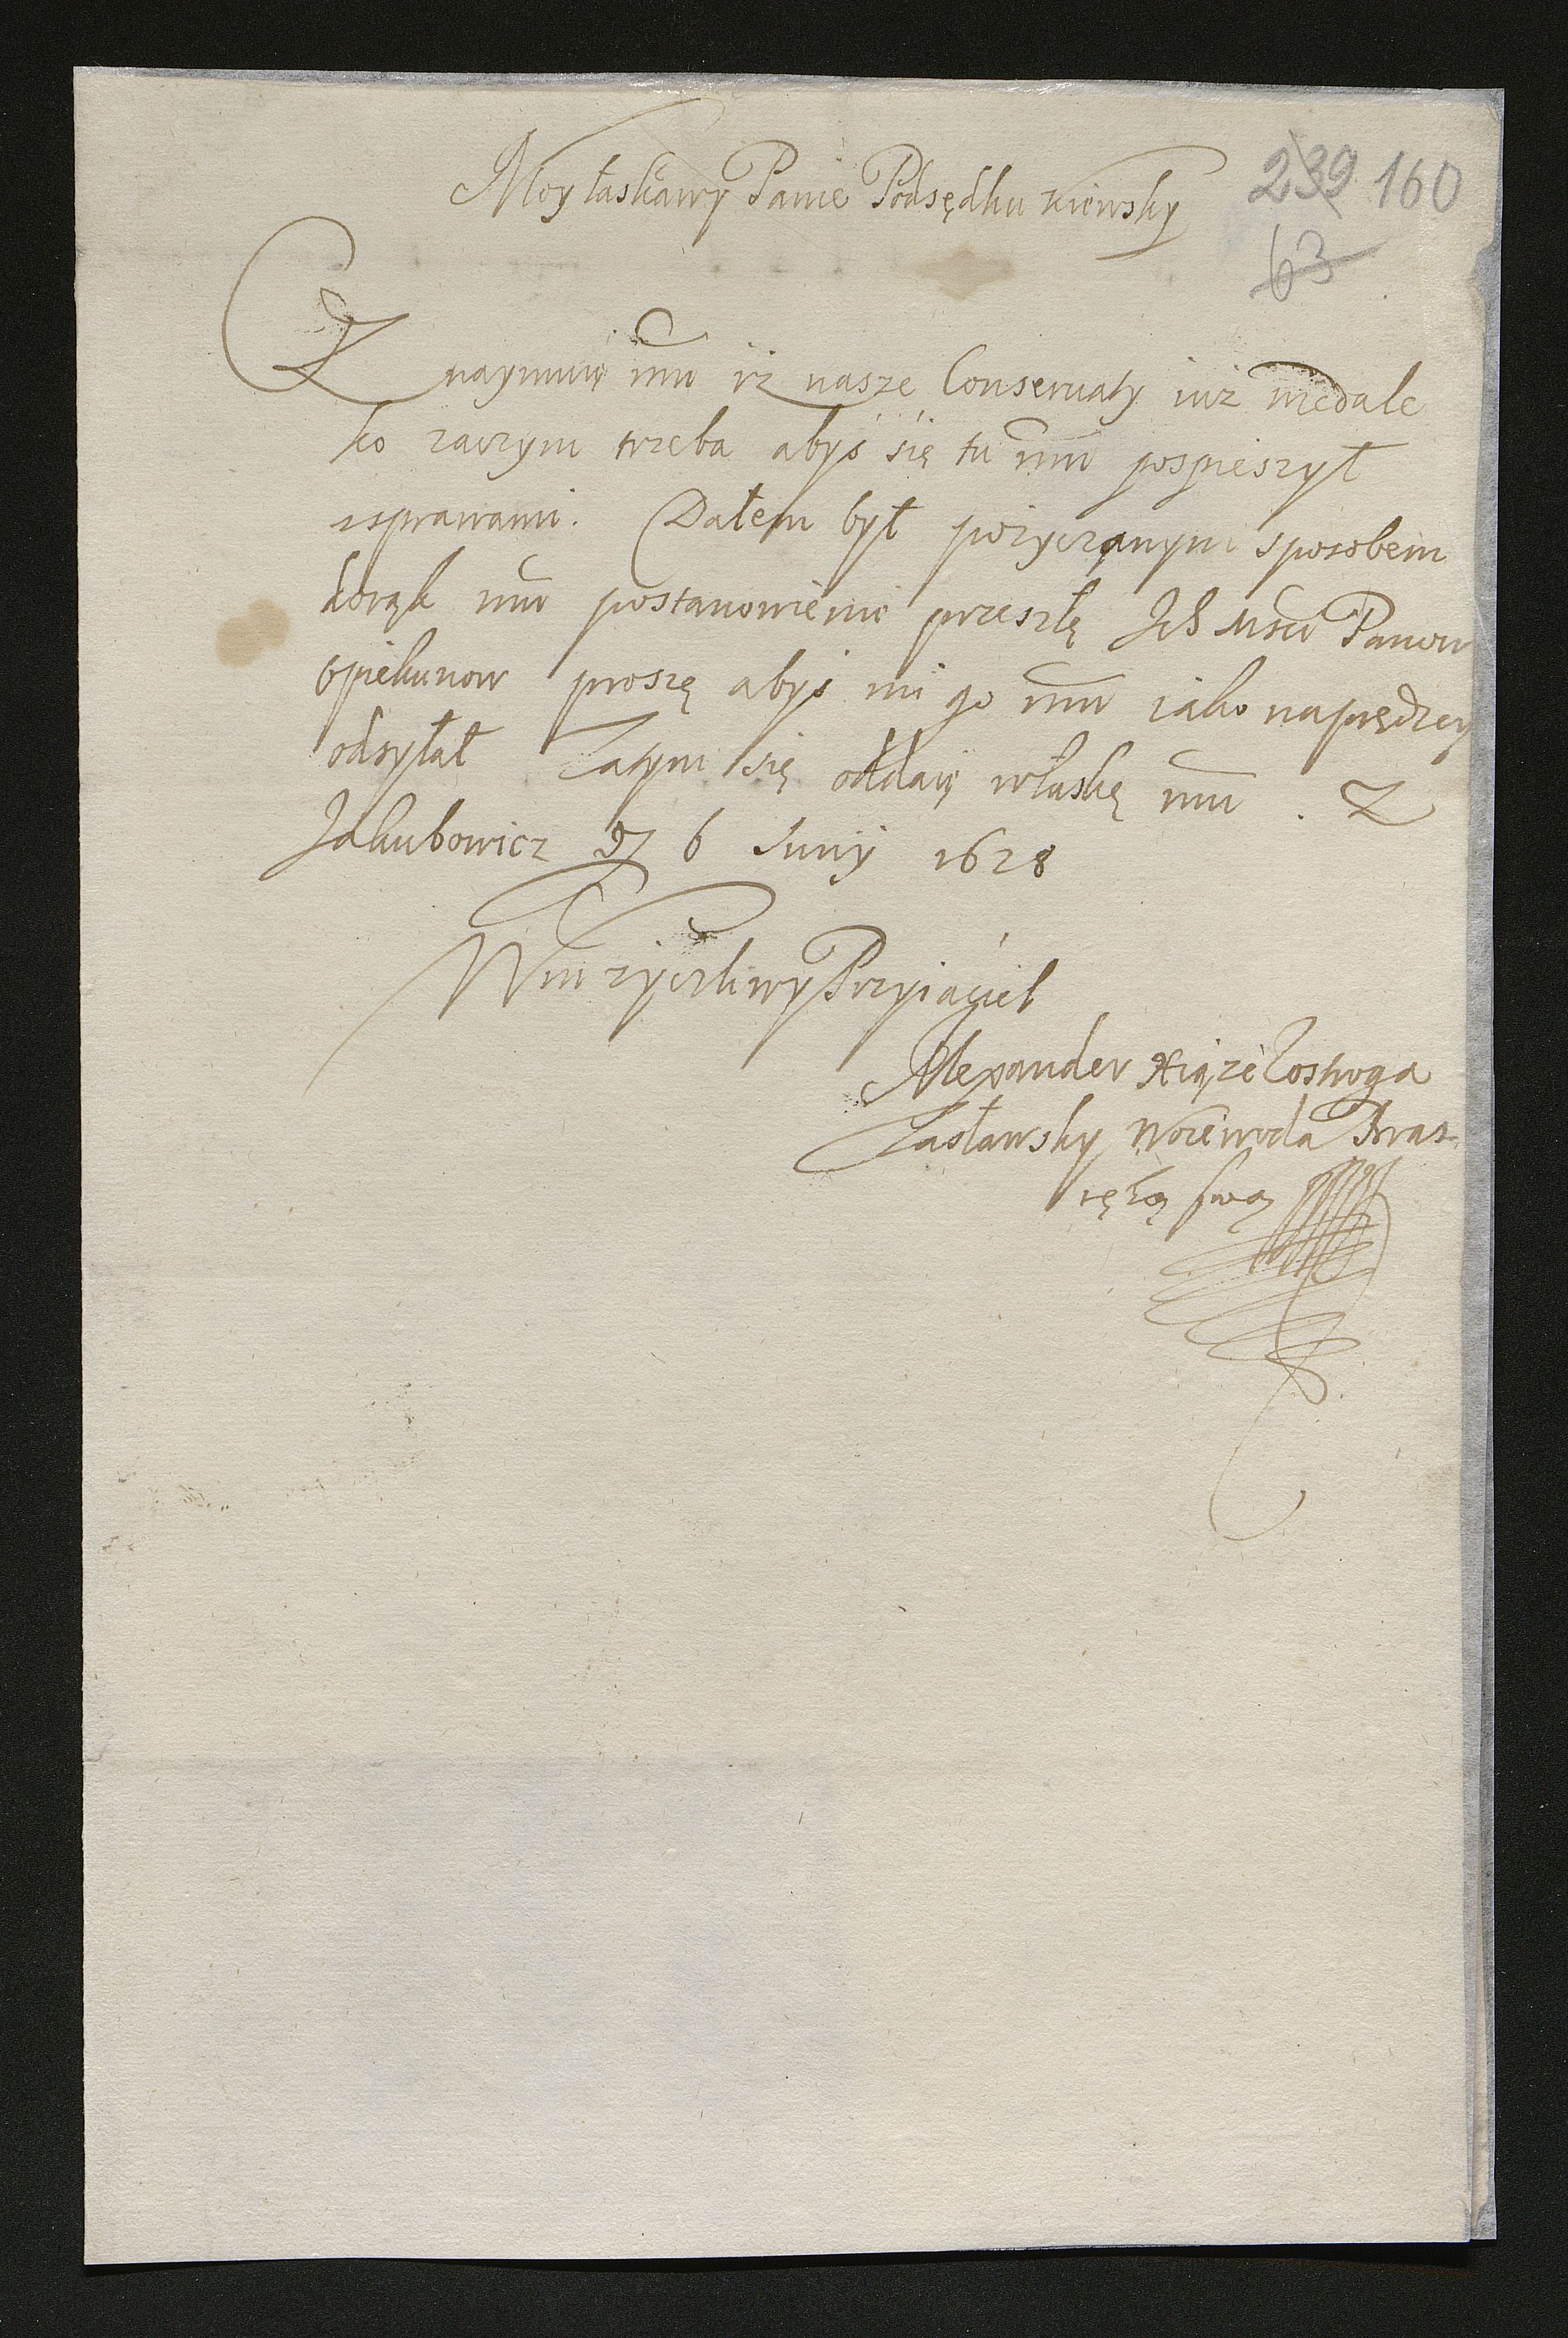 Moy łaskawy Panie Podsędku Kiewsky
239 160
63
Oznaymuię wm iż nasze Conservaty iuż niedale
ko zaczym trzeba abyś się tu wm pospieszył
zsprawami. Dałem był pożyczanym sposobem
dorąk wm postanowienie przeszłę Ich Mscw Panow
Opiekunow proszę abyś mi go wm iako naprędzey
odsyłał Zatym się oddaię właskę wm. Z
Jakubowicz D 6 Junij 1628
Wm życzliwy Przyiaciel
Alexander Xiąże Zostroga
Zasławsky Woiewoda Bras
ręką swą